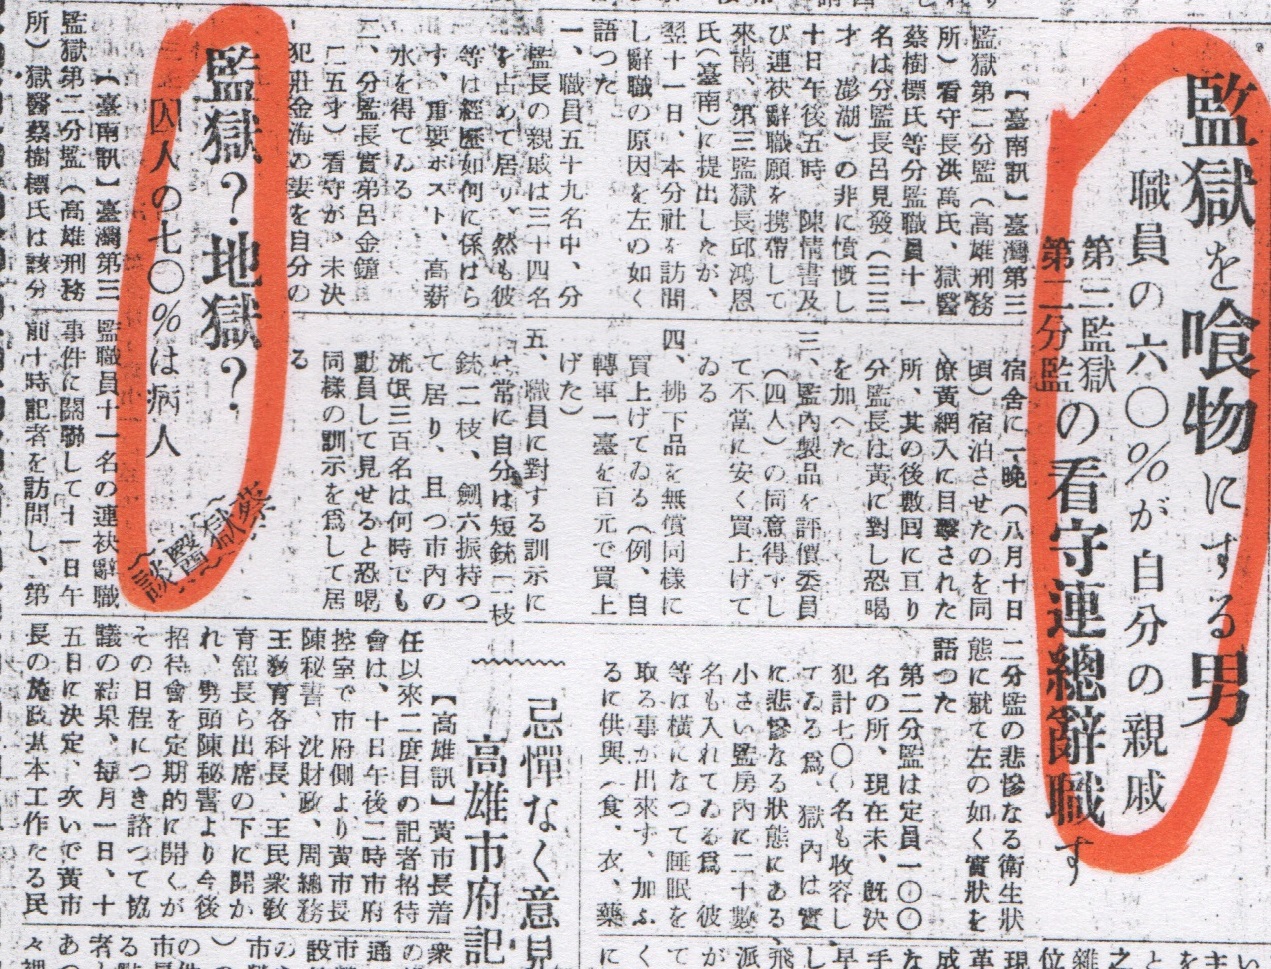 監獄を喰物にする男
職員の六〇%が自分の親戚
第三監獄
第二分監の看守連總辭職す
【臺南訊】臺灣第三
監獄第二分監(高雄刑務
所)看守長洪萬氏、獄醫
蔡樹標氏等分監職員十一
名は分監長呂見發(三三
才 澎湖)の非に憤慨し
十日午後五時、陳情書及
び連袂辭職願を携帶して
來南、第三監獄長邱鴻恩
氏(臺南)に提出したが、
翌十一日、本分社を訪問
し辭職の原因を左の如く
語つた
一、職員五十九名中、分
監長の親戚は三十四名
を占めて居り、然も彼
等は經歷如何に係はら
す、重要ポスト、高薪
水を得てゐる
二、分監長實弟呂金鐘
(二五才)看守が、未決
犯莊金海の妻を自分の
宿舍に一晩(八月十日
頃)宿泊させたのを同
僚黃網入に目擊された
所、其の後數回に亘り
分監長は黃に對し恐喝
を加へた
三、監內製品を評價委員
(四人)の同意得すし
て不當に安く買上げて
ゐる
四、拂下品を無償同樣に
買上げてゐる(例、自
轉車一臺を百元で買上
げた)
五、職員に對する訓示に
は常に自分は短銃二枝
銃二枝、劍六振持つ
て居り、且つ市內の
流氓三百名は何時でも
動員して見せると恐喝
同樣の訓示を爲して居
る
監獄?地獄?
囚人の七〇%は病人
蔡獄醫談
【臺南訊】臺灣第三
監獄第二分監(高雄刑務
所)獄醫蔡樹標氏は該分
監職員十一名の連袂辭職
事件に關聯して十一日午
前十時記者を訪問し、第
二分監の悲慘なる衛生狀
態に就て左の如く實狀を
語つた
第二分監は定員一〇〇
名の所、現在未、既決
犯計七〇〇名も收容し
てゐる爲、獄內は實
に悲慘なる狀態にある、
小さい監房內に二十數
名も入れてゐる爲 彼
等は橫になつて睡眠を
取る事が出來す、加ふ
るに供與(食、衣、藥
忌憚なく意見
高雄市府記
【高雄訊】黃市長着
任以來二度目の記者招待
會は、十日午後二時市府
控室で市府側より黃市長
陳秘書、沈財政、周總務
王敎育各科長、王民衆敎
育館長ら出席の下に開か
れ、劈頭陳秘書より今後
招待會を定期的に開くが
その日程につき諮つて協
議の結果、每月一日、十
五日に決定、次いで黃市
長の施政基本工作たる民